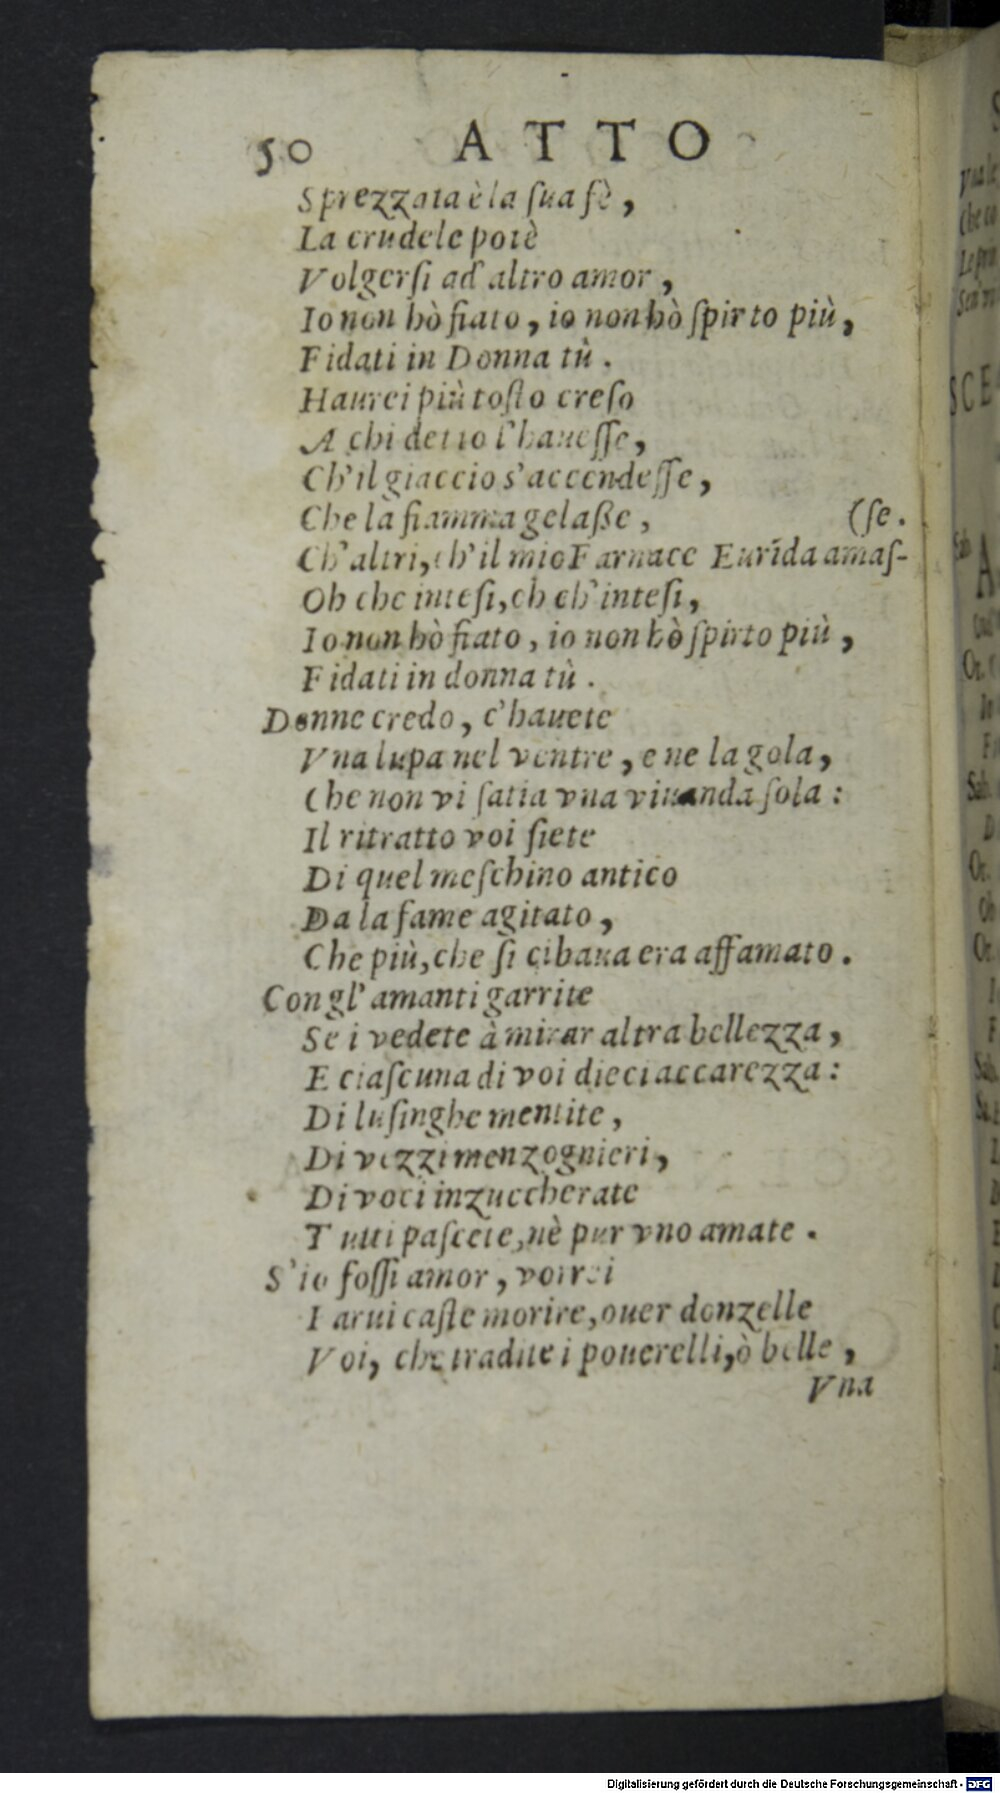 50 ATTO
Sprezzata è la ſua fè,
La crudele potè
Volgerſi ad altro amor,
Io non hò fiato, io non hò ſpirto più,
Fidati in Donna tù.
Haurei più toſto creſo
A chi detto l'haueſſe,
Ch'il giaccio s'accendeſſe,
Che la fiamma gelaße, (ſe.
Ch'altri, ch'il mio Farnace Eurída amaſ-
Oh che inteſi, oh ch'inteſi,
Io non hò fiato, io non hò ſpirto più,
Fidati in donna tù.
Donne credo, c'hauete
Vna lupa nel ventre, e ne la gola,
Che non vi ſatia vna viuanda ſola:
Il ritratto voi ſiete
Di quel meſchino antico
Da la fame agitato,
Che più, che ſi cibaua era affamato.
Con gl'amanti garrite
Se i vedete à mirar altra bellezza,
E ciaſcuna di voi dieci accarezza:
Di luſinghe mentite,
Di vezzi menzognieri,
Di voci inzuccherate
Tutti paſcete, nè pur vno amate.
S'io foſſi amor, vorrei
Farui caſte morire, ouer donzelle
Voi, che tradite i pouerelli, ò belle,
Vna
Digitalisierung gefördert durch die Deutsche Forschungsgemeinschaft - DFG